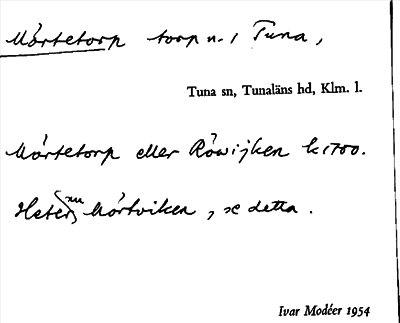 Mörtetorp torp n. i Tuna,
Tuna sn, Tunaläns hd, Klm. l.
Mörtetorp eller Röwijken k 1700.
Heter nu Mörtviken, se detta.
Ivar Modéer 1954